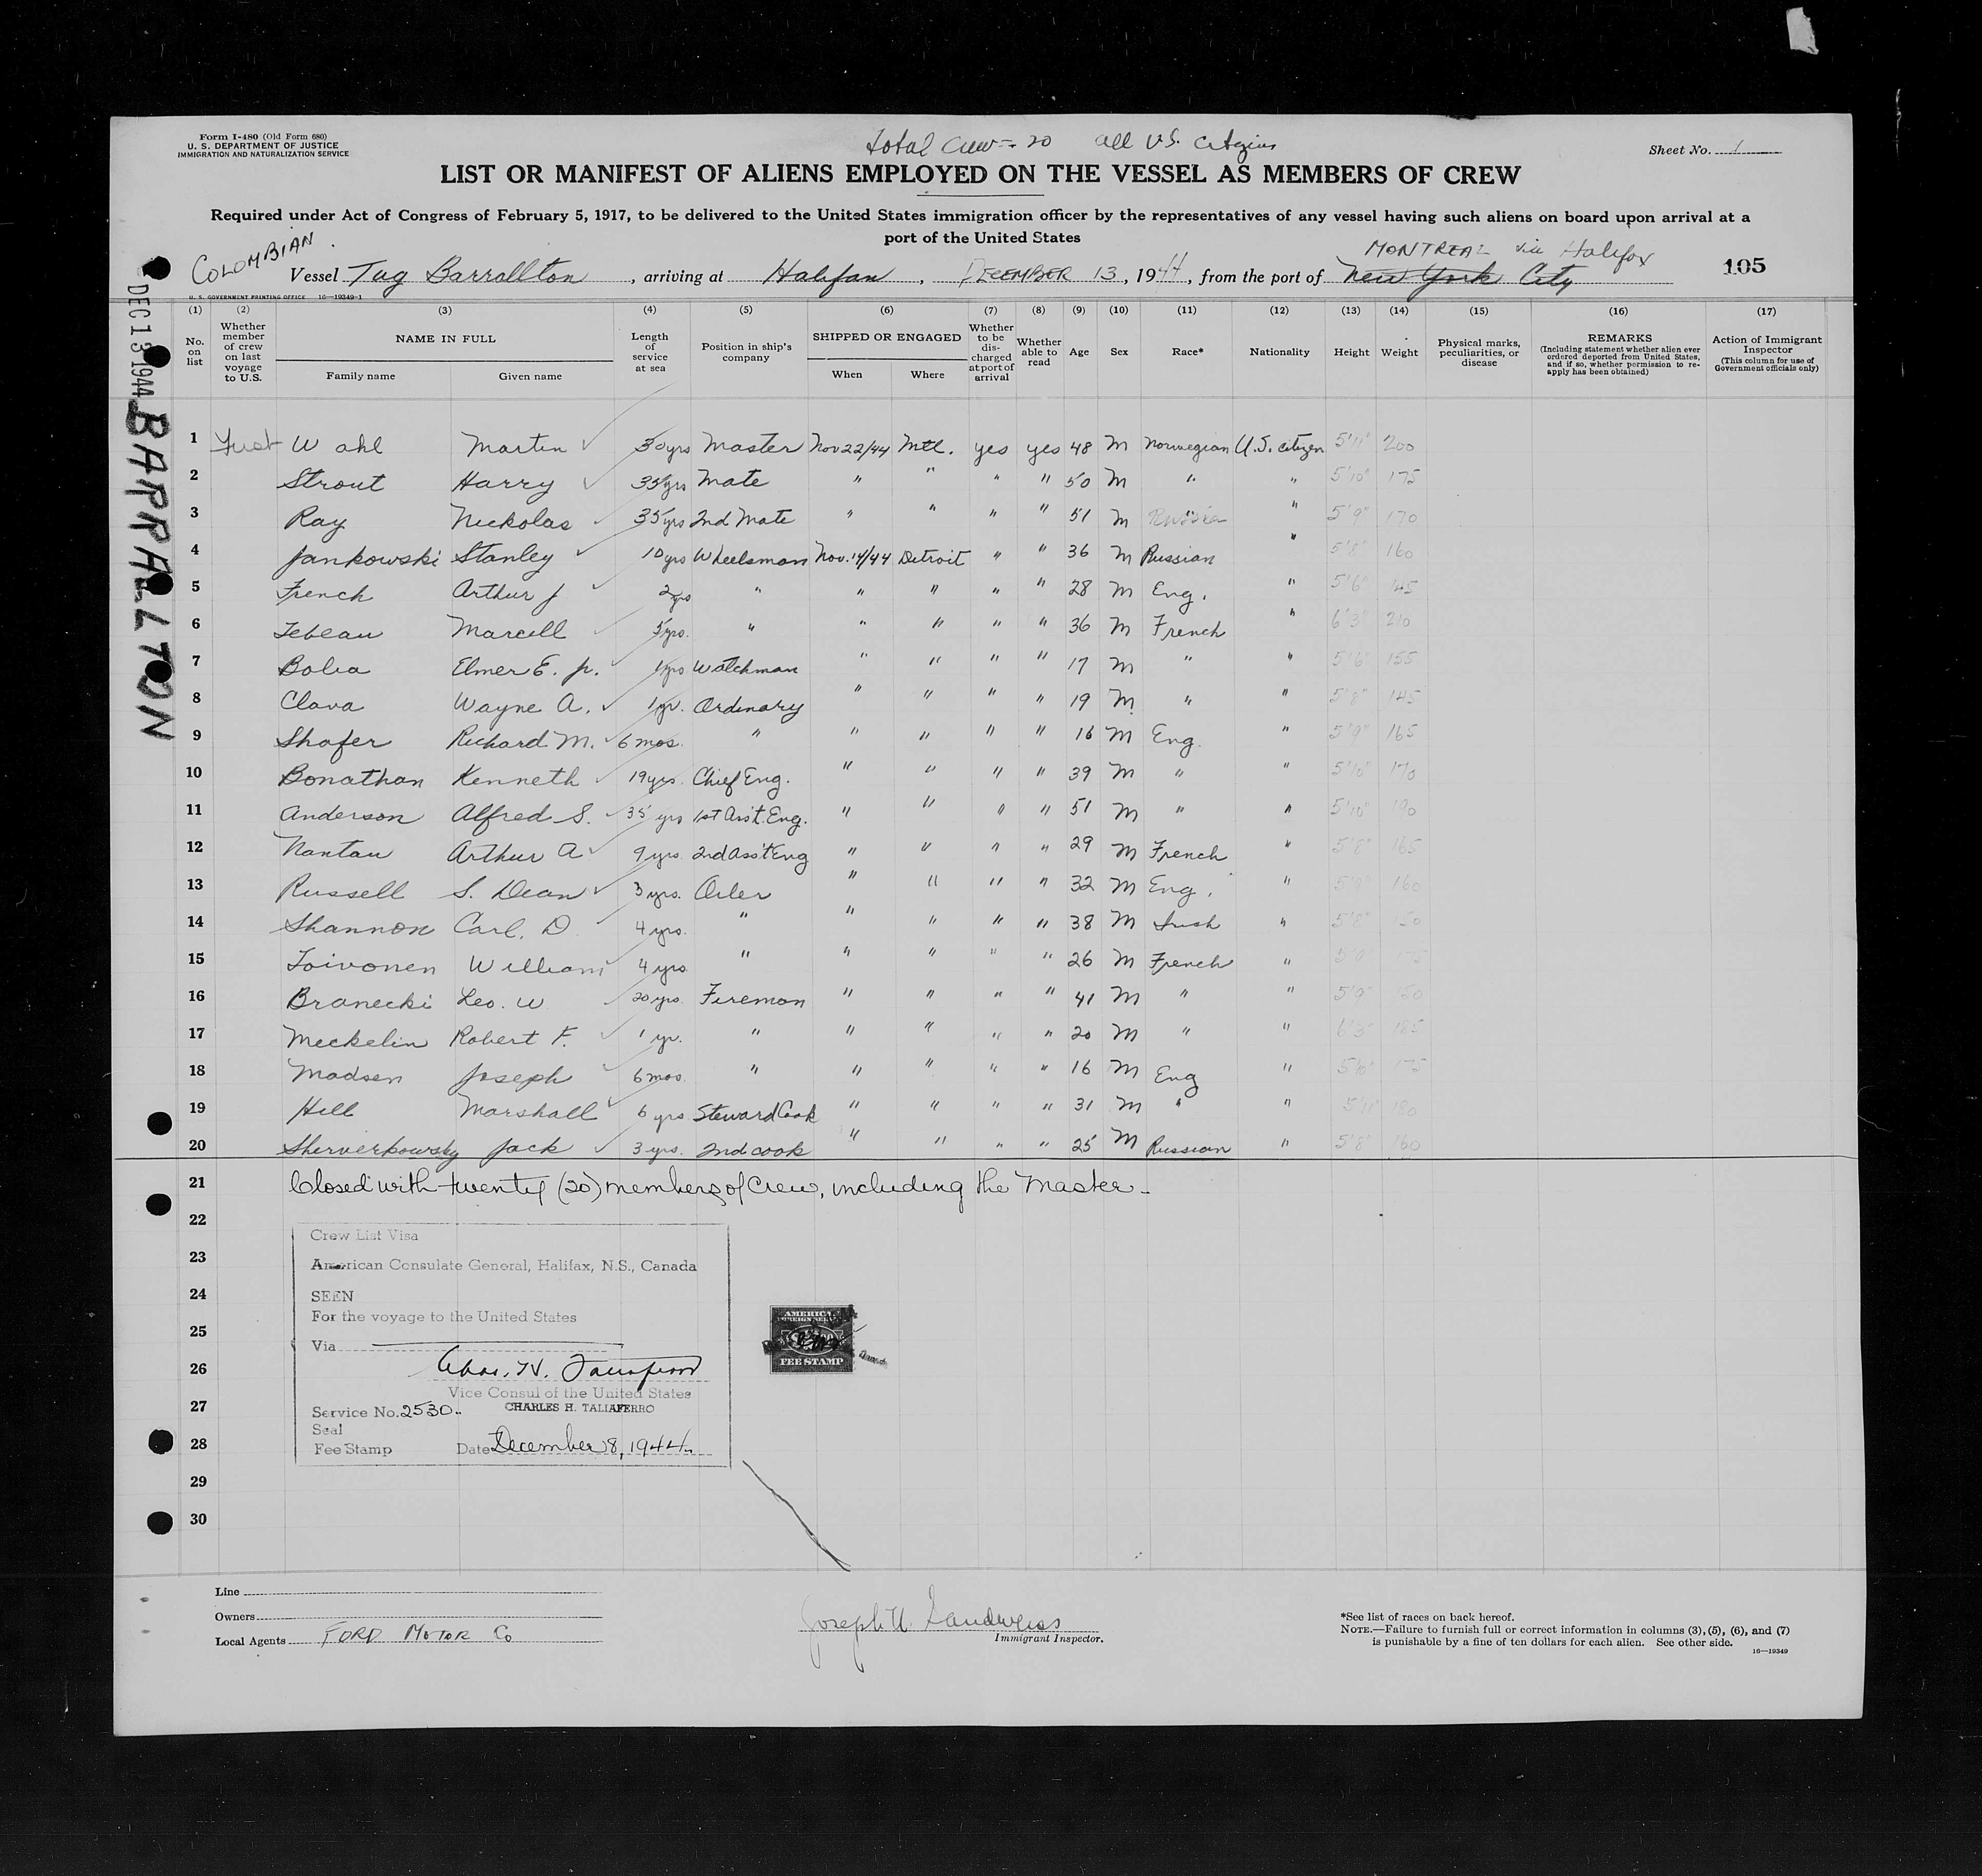 Form I-480 (Old Form 680)
U. S. DEPARTMENT OF JUSTICE
IMMIGRATION AND NATURALIZATION SERVICE
total crew = 20 all U.S. Citizens
Sheet No. 1
LIST OR MANIFEST OF ALIENS EMPLOYED ON THE VESSEL AS MEMBERS OF CREW
Required under Act of Congress of February 5, 1917, to be delivered to the United States immigration officer by the representatives of any vessel having such aliens on board upon arrival at a
port of the United States
COLOMBIAN
MONTREAL via Halifax
Vessel Tug Barrallton, arriving at Halifax, DECEMBER 13, 1944, from the port of New York City
105
U. S. GOVERNMENT PRINTING OFFICE 16—19349-1
DEC 13 1944
BARRALLTON
(1) (2) (3) (4) (5) (6) (7) (8) (9) (10) (11) (12) (13) (14) (15) (16) (17)
No. on list
Whether member of crew on last voyage to U.S.
NAME IN FULL
Family name
Given name
Length of service at sea
Position in ship's company
SHIPPED OR ENGAGED
When
Where
Whether to be discharged at port of arrival
Whether able to read
Age
Sex
Race*
Nationality
Height
Weight
Physical marks, peculiarities, or disease
REMARKS
(Including statement whether alien ever ordered deported from United States, and if so, whether permission to reapply has been obtained)
Action of Immigrant Inspector
(This column for use of Government officials only)
1 Wahl Martin 30 yrs Master Nov 22/44 Mtl. yes yes 48 M Norwegian U.S. citizen 5'11" 200
2 Strout Harry 35 yrs Mate " " " " 50 M " " 5'10" 175
3 Ray Nickolas 35 yrs 2nd Mate " " " " 51 M Russia " 5'9" 170
4 Jankowski Stanley 10 yrs Wheelsman Nov. 14/44 Detroit " " 36 M Russian " 5'8" 160
5 French Arthur J 2 yrs " " " " " 28 M Eng. " 5'6" 145
6 Tebeau Marcell 5 yrs. " " " " " 36 M French " 6'3" 210
7 Bolia Elmer E. Jr. 1 yrs Watchman " " " " 17 M " " 5'6" 155
8 Clava Wayne A. 1 yr. Ordinary " " " " 19 M " " 5'8" 145
9 Shafer Richard M. 6 mos. " " " " " 16 M Eng. " 5'9" 165
10 Bonathan Kenneth 19 yrs. Chief Eng. " " " " 39 M " " 5'10" 170
11 Anderson Alfred S. 35 yrs 1st Ass't. Eng. " " " " 51 M " " 5'10" 190
12 Nantau Arthur A 9 yrs. 2nd Ass't Eng " " " " 29 M French " 5'8" 165
13 Russell S. Dean 3 yrs. Oiler " " " " 32 M Eng. " 5'9" 160
14 Shannon Carl. D 4 yrs. " " " " " 38 M Irish " 5'8" 150
15 Toivonen William 4 yrs " " " " " 26 M French "
16 Branecki Leo. W 20 yrs. Fireman " " " " 41 M " " 5'9" 150
17 Meckelin Robert F. 1 yr. " " " " " 20 M " " 6'3" 185
18 Madsen Joseph 6 mos. " " " " " 16 M Eng " 5'10" 175
19 Hill Marshall 6 yrs Steward Cook " " " " 31 M " " 5'11" 180
20 Sherverkowsky Jack 3 yrs. 2nd cook " " " " 25 M Russian " 5'8" 160
21 Closed with twenty (20) members of crew, including the Master.
22
23
24
25
26
27
28
29
30
Crew List Visa
American Consulate General, Halifax, N.S., Canada
SEEN
For the voyage to the United States
Via
Vice Consul of the United States
CHARLES H. TALIAFERRO
Service No. 2530.
Seal
Fee Stamp Date December 8, 1944
FEE STAMP
Line
Owners
Local Agents FORD MOTOR Co
Joseph U. Landweiss
Immigrant Inspector.
*See list of races on back hereof.
NOTE.—Failure to furnish full or correct information in columns (3), (5), (6), and (7)
is punishable by a fine of ten dollars for each alien. See other side.
16—19349